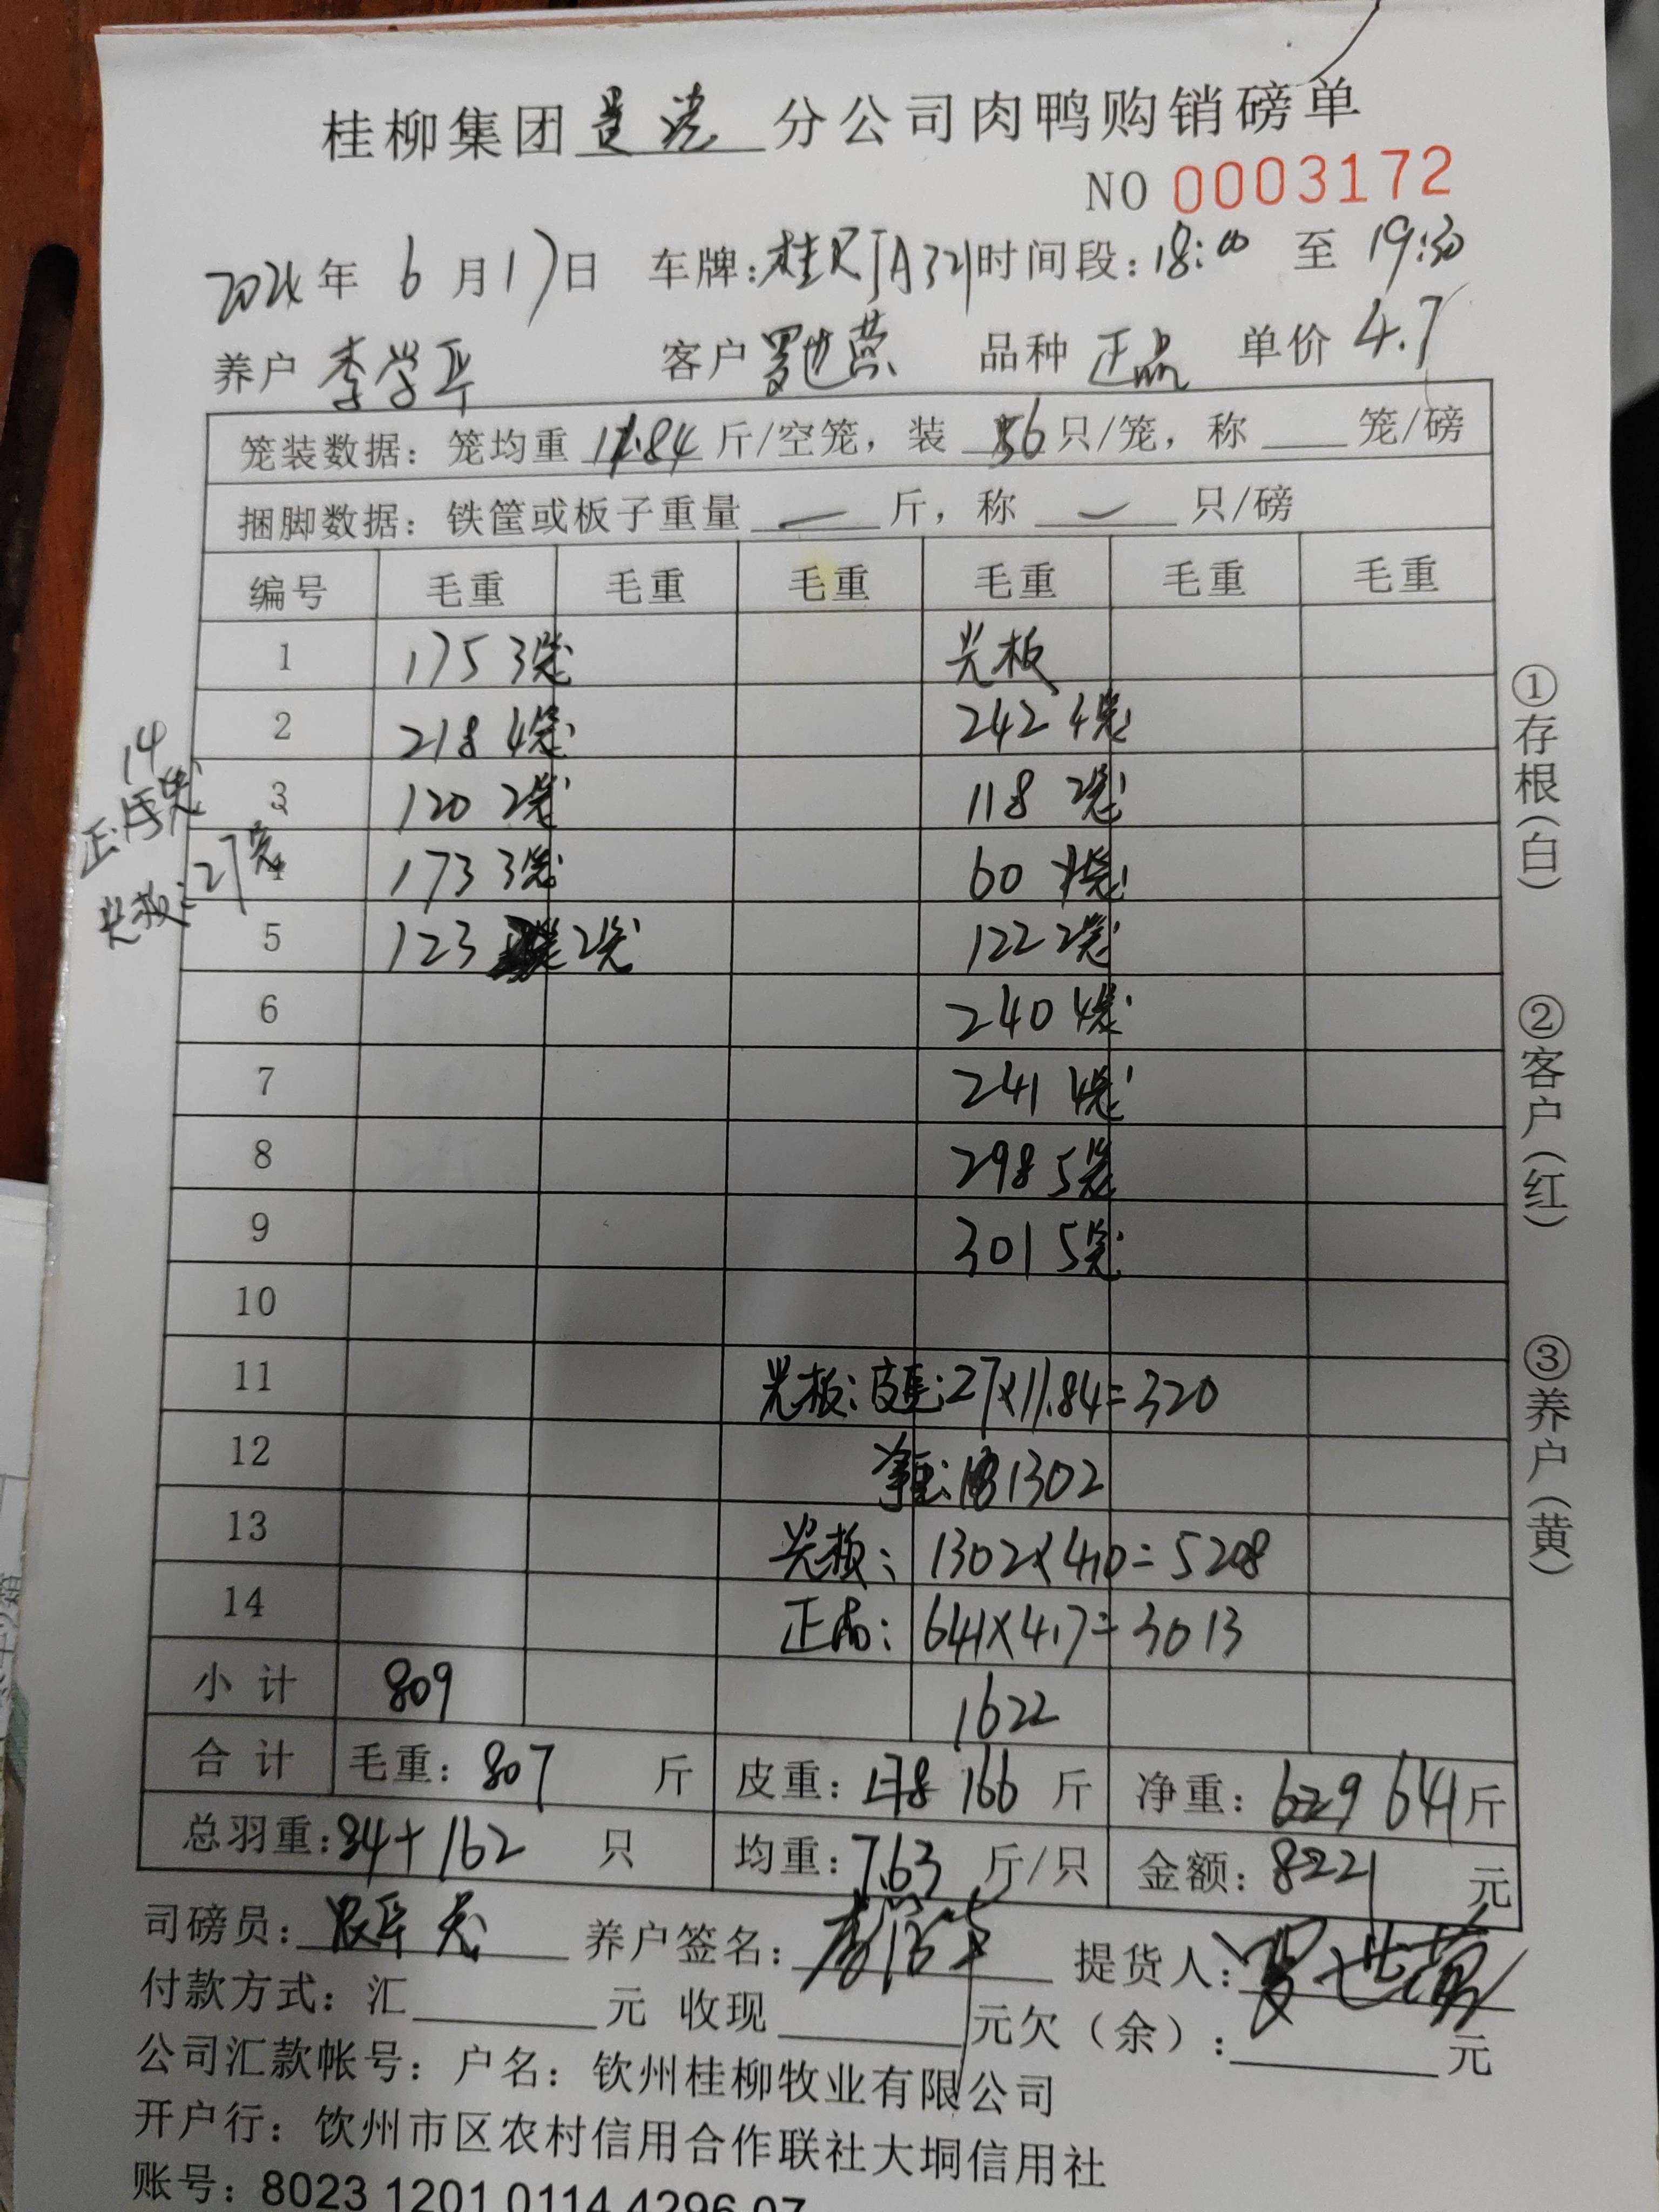 桂柳集团 分公司肉鸭购销磅单
NO 0003172
2024年 6 月 17 日 车牌: 时间段: 18:00 至 19:30
养户 李学平 客户 罗世营 品种 正品 单价 4.7
笼装数据: 笼均重 11.84 斤/空笼, 装 6 只/笼, 称 笼/磅
捆脚数据: 铁筐或板子重量 — 斤, 称 — 只/磅
编号 毛重 毛重 毛重 毛重 毛重 毛重
1 175 3笼 光板
2 218 4笼 242 4笼
3 120 2笼 118 2笼
4 173 3笼 60 1笼
5 123 2笼 122 2笼
6 240 4笼
7 241 4笼
8 298 5笼
9 301 5笼
10
11 光板: 皮重: 27×11.84=320
12 净重: 1302
13 光板: 1302×4.0=5208
14 正品: 641×4.7=3013
小计 809 1622
合计 毛重: 807 斤 皮重: 166 斤 净重: 629 641斤
总羽重: 84+162 只 均重: 7.63 斤/只 金额: 8221 元
14
正品: 笼
光板: 27笼
①存根(白) ②客户(红) ③养户(黄)
司磅员: 养户签名: 提货人: 罗世营
付款方式: 汇 元 收现 元欠(余): 元
公司汇款帐号: 户名: 钦州桂柳牧业有限公司
开户行: 钦州市区农村信用合作联社大垌信用社
账号: 8023 1201 0114 4296 07